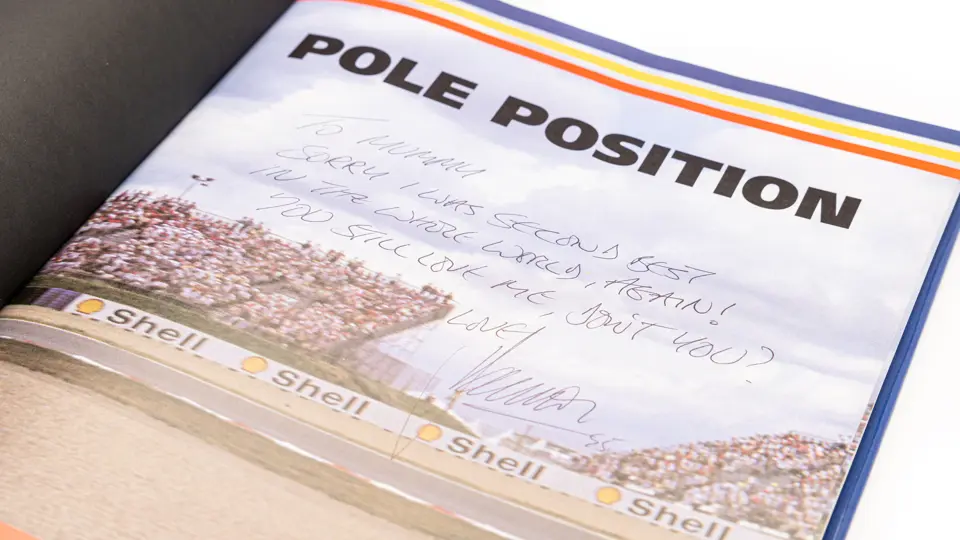 POLE POSITION
TO MUMMY
SORRY I WAS SECOND BEST
IN THE WHOLE WORLD, AGAIN!
YOU STILL LOVE ME, DON'T YOU?
LOVE!
Shell
Shell
Shell
Shell